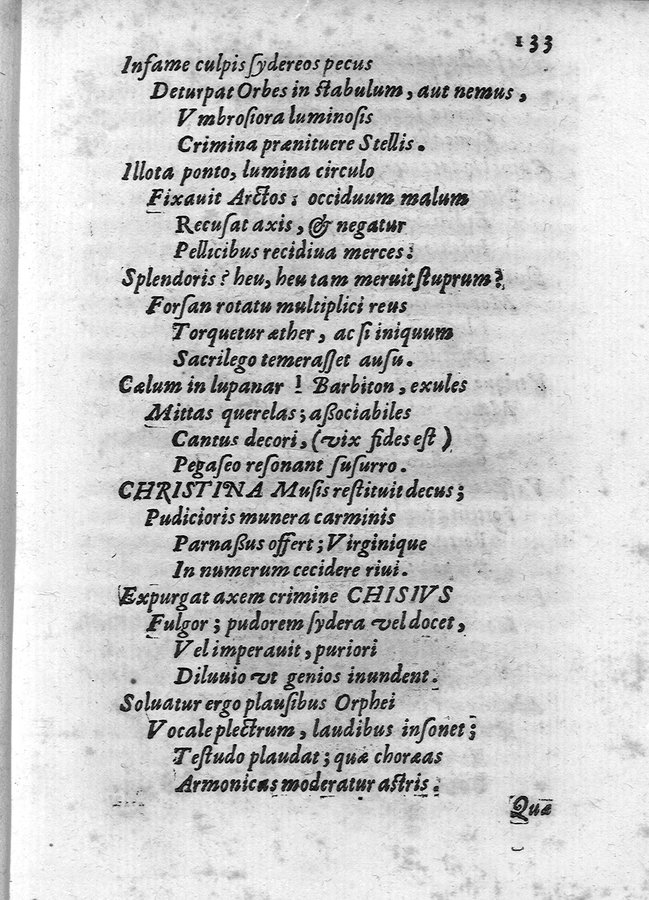 133
Infame culpis ſydereos pecus
Deturpat Orbes in ſtabulum, aut nemus,
Vmbroſiora luminoſis
Crimina prænituere Stellis.
Illota ponto, lumina circulo
Fixauit Arctos: occiduum malum
Recuſat axis, & negatur
Pellicibus recidiua merces:
Splendoris? heu, heu tam meruit ſtuprum?
Forſan rotatu multiplici reus
Torquetur æther, ac ſi iniquum
Sacrilego temeraſſet auſu.
Cælum in lupanar! Barbiton, exules
Mittas querelas; aßociabiles
Cantus decori, (vix fides eſt)
Pegaſeo reſonant ſuſurro.
CHRISTINA Muſis reſtituit decus;
Pudicioris munera carminis
Parnaßus offert; Virginique
In numerum cecidere riui.
Expurgat axem crimine CHISIVS
Fulgor; pudorem ſydera vel docet,
Vel imperauit, puriori
Diluuio vt genios inundent.
Soluatur ergo plauſibus Orphei
Vocale plectrum, laudibus inſonet;
Teſtudo plaudat; quæ choræas
Armonicas moderatur aſtris.
Quæ